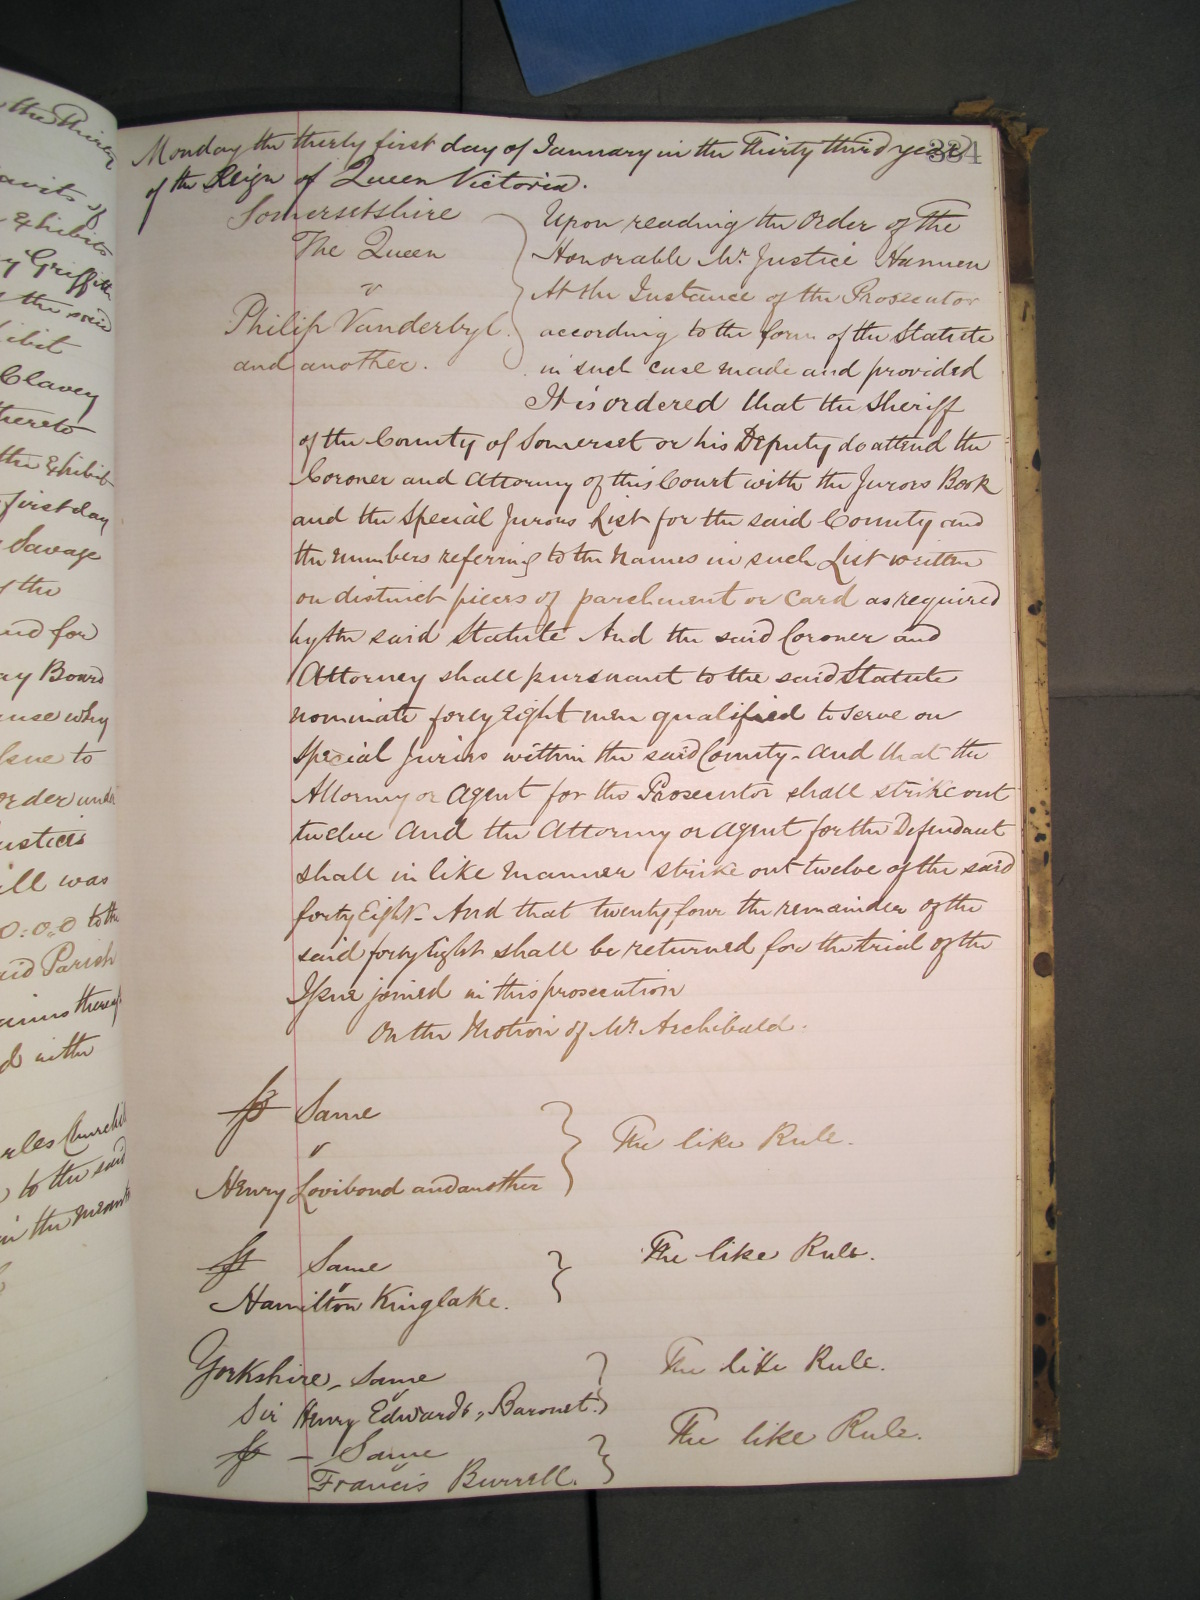 Monday the thirty first day of January in the Thirty third year
334
of the Reign of Queen Victoria.
Somersetshire
The Queen
v
Philip Vanderbyl
and another.
Upon reading the Order of The
Honorable Mr. Justice Hannen
At the Instance of the Prosecutor
according to the form of the Statute
in such case made and provided
It is ordered that the Sheriff
of the County of Somerset or his Deputy do attend the
Coroner and Attorney of this Court with the Jurors Book
and the Special Jurors List for the said County and
the numbers referring to the Names in such List written
on distinct pieces of parchment or Card as required
by the said Statute And the said Coroner and
Attorney shall pursuant to the said Statute
nominate forty Eight men qualified to serve on
Special Juries within the said County - and that the
Attorney or Agent for the Prosecutor shall strike out
twelve And the Attorney or Agent for the Defendant
shall in like Manner strike out twelve of the said
forty Eight - And that twenty four the remainder of the
said forty Eight shall be returned for the trial of the
Issue joined in this prosecution
On the Motion of Mr. Archibald.
Same
v
Henry Lovibond and another
The like Rule.
Same
v
Hamilton Kinglake.
The like Rule.
Yorkshire - Same
v
Sir Henry Edwards, Baronet.
The like Rule.
- Same
v
Francis Burrell.
The like Rule.
Griffith
the said
Clavey
thereto
the Exhibit
first day
Savage
of the
and for
Board
cause why
Issue to
order under
Justices
was
to the
said Parish
in the
Charles Churchill
to the said
in the